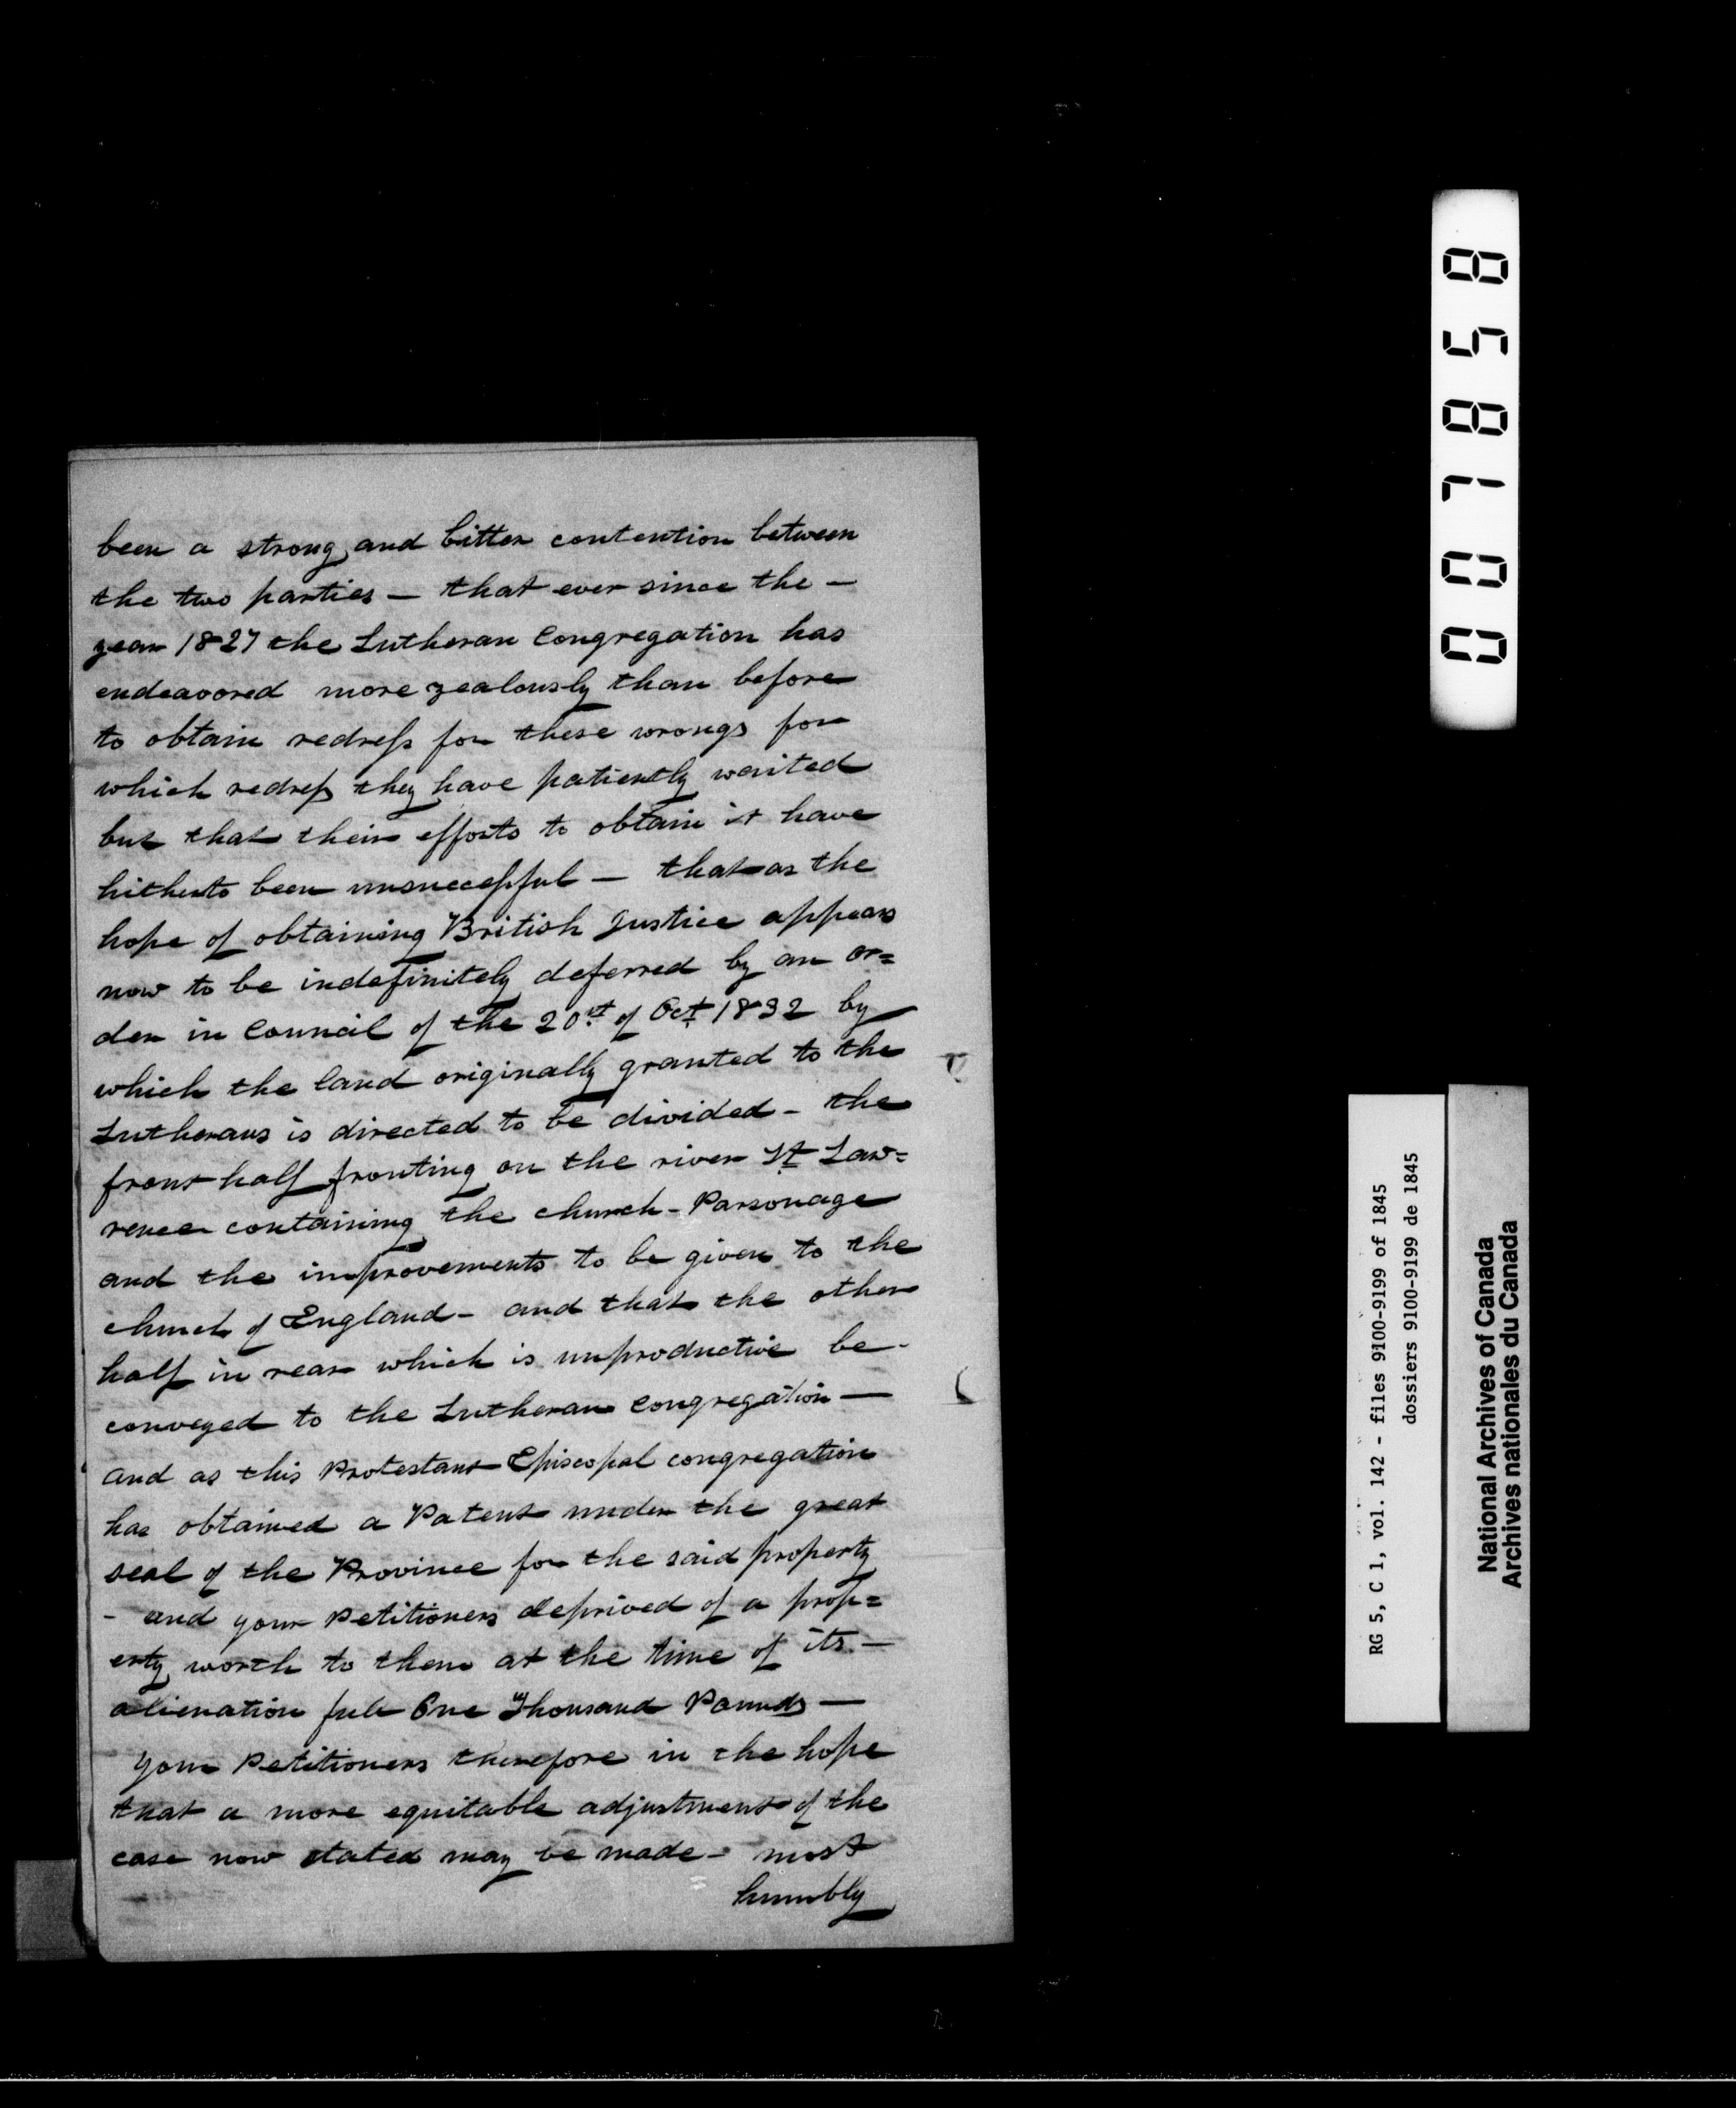 been a strong and bitter contention between
the two parties — that ever since the —
year 1827 the Lutheran Congregation has
endeavored more zealously than before
to obtain redress for these wrongs for
which redress they have patiently waited
but that their efforts to obtain it have
hitherto been unsuccessful — that as the
hope of obtaining British Justice appears
now to be indefinitely deferred by an or=
der in Council of the 20st of Oct 1832 by
which the land originally granted to the
Lutherans is directed to be divided - the
front half fronting on the river St Law=
rence containing the church - Parsonage
and the improvements to be given to the
church of England - and that the other
half in rear which is unproductive be -
conveyed to the Lutheran congregation —
and as this Protestant Episcopal congregation
has obtained a Patent under the great
seal of the Province for the said property
- and your Petitioners deprived of a prop=
erty worth to them at the time of its —
alienation full One Thousand Pounds —
Your Petitioners therefore in the hope
that a more equitable adjustment of the
case now stated may be made - most
humbly
007858
RG 5, C 1, vol. 142 - files 9100-9199 of 1845
dossiers 9100-9199 de 1845
National Archives of Canada
Archives nationales du Canada